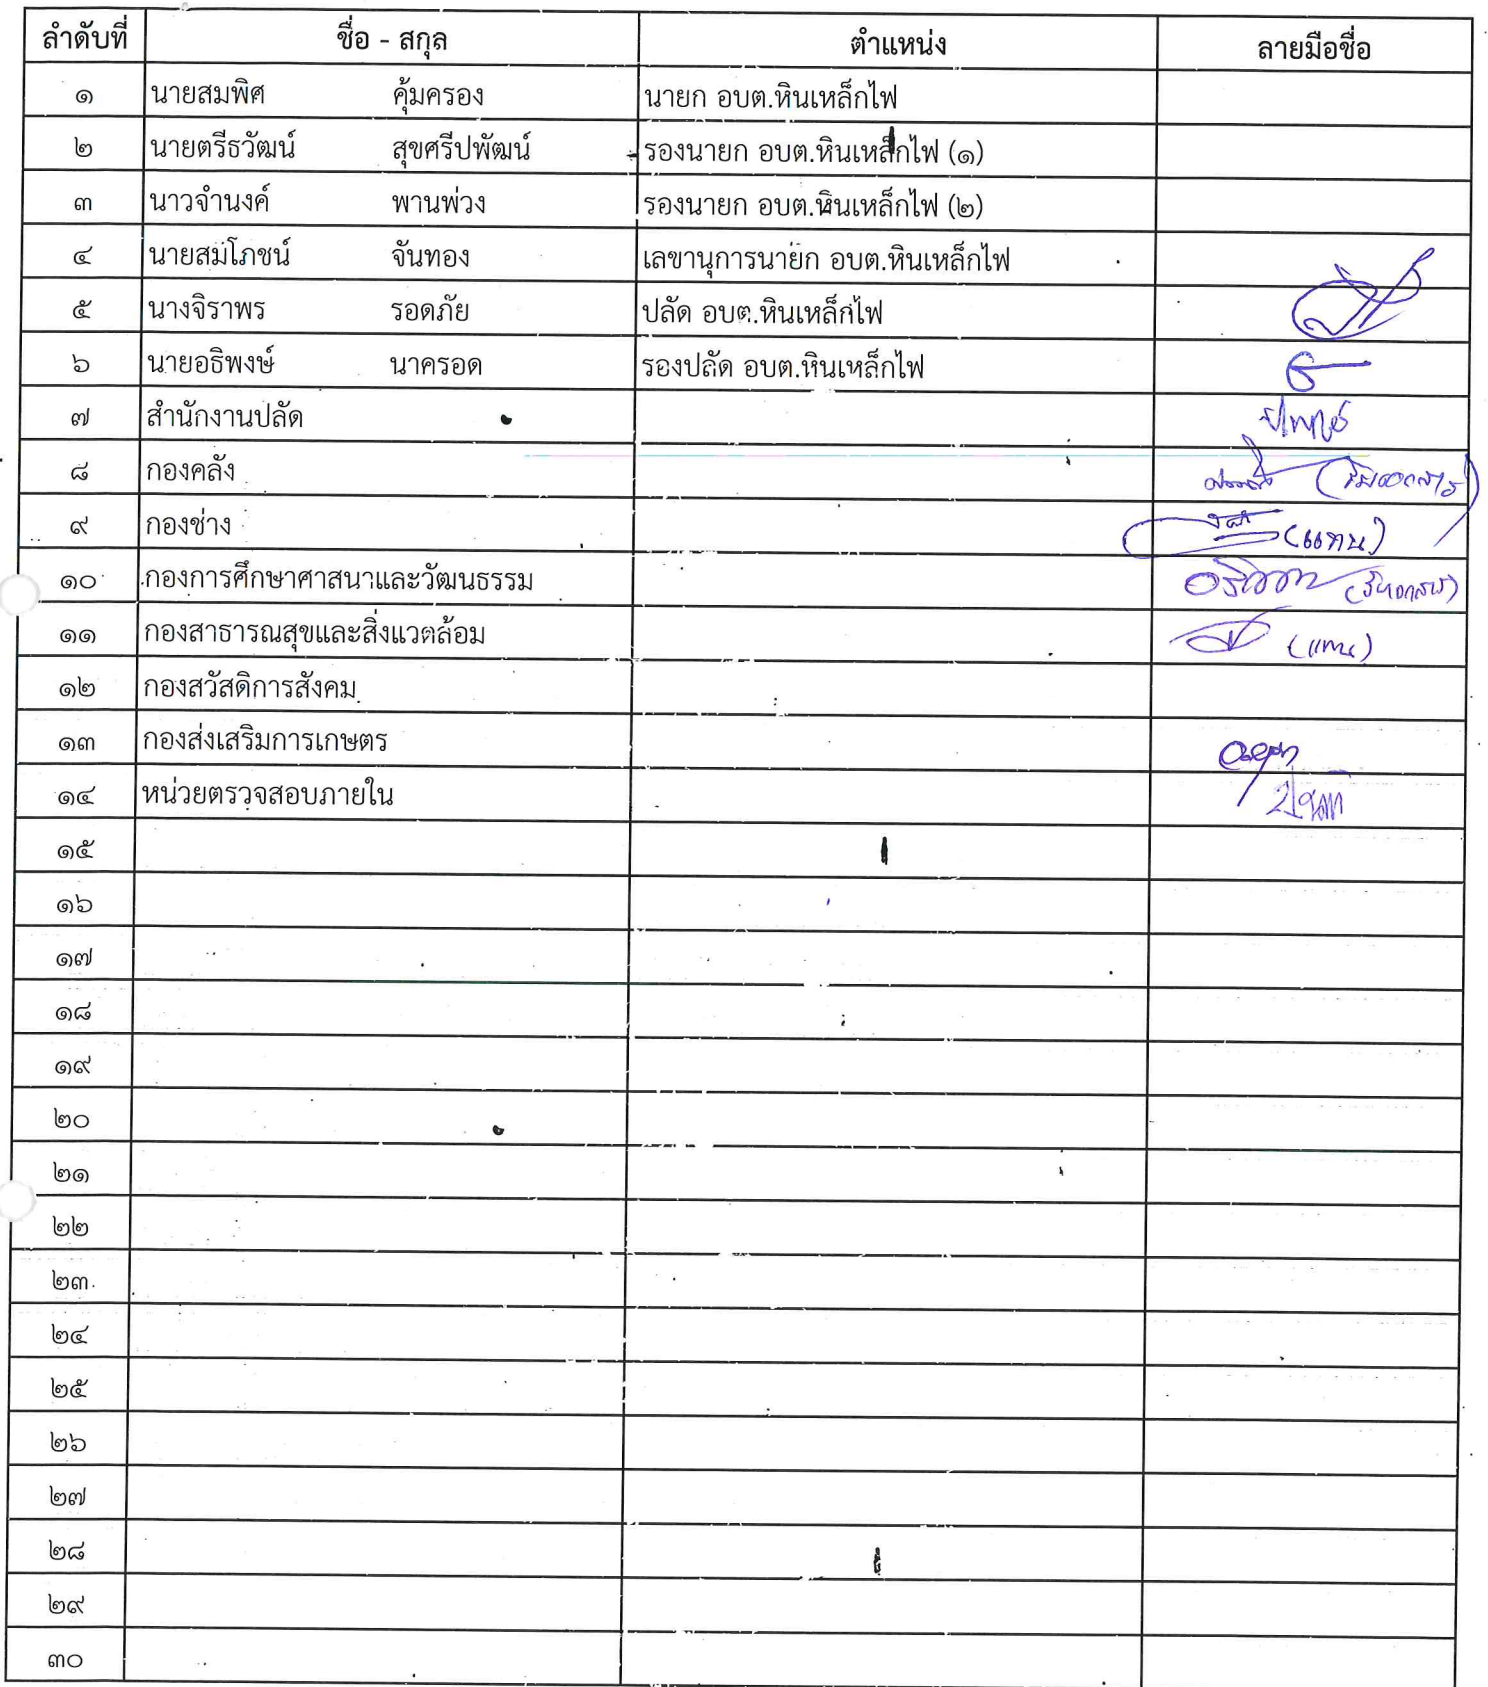 ลำดับที่ ชื่อ - สกุล ตำแหน่ง ลายมือชื่อ
๑ นายสมพิศ คุ้มครอง นายก อบต.หินเหล็กไฟ
๒ นายตรีธวัฒน์ สุขศรีปพัฒน์ รองนายก อบต.หินเหล็กไฟ (๑)
๓ นาวจำนงค์ พานพ่วง รองนายก อบต.หินเหล็กไฟ (๒)
๔ นายสมโภชน์ จันทอง เลขานุการนายก อบต.หินเหล็กไฟ
๕ นางจิราพร รอดภัย ปลัด อบต.หินเหล็กไฟ
๖ นายอธิพงษ์ นาครอด รองปลัด อบต.หินเหล็กไฟ
๗ สำนักงานปลัด
๘ กองคลัง
๙ กองช่าง (แทน)
๑๐ กองการศึกษาศาสนาและวัฒนธรรม
๑๑ กองสาธารณสุขและสิ่งแวดล้อม (แทน)
๑๒ กองสวัสดิการสังคม
๑๓ กองส่งเสริมการเกษตร
๑๔ หน่วยตรวจสอบภายใน
๑๕
๑๖
๑๗
๑๘
๑๙
๒๐
๒๑
๒๒
๒๓
๒๔
๒๕
๒๖
๒๗
๒๘
๒๙
๓๐